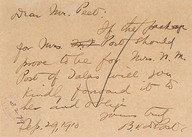 Dear Mr. Peet:
If the package
for Mrs. Post should
prove to be for Mrs. N. M.
Post of Salais will you
kindly forward it to
her and oblige
yours truly
Sep. 29, 1910